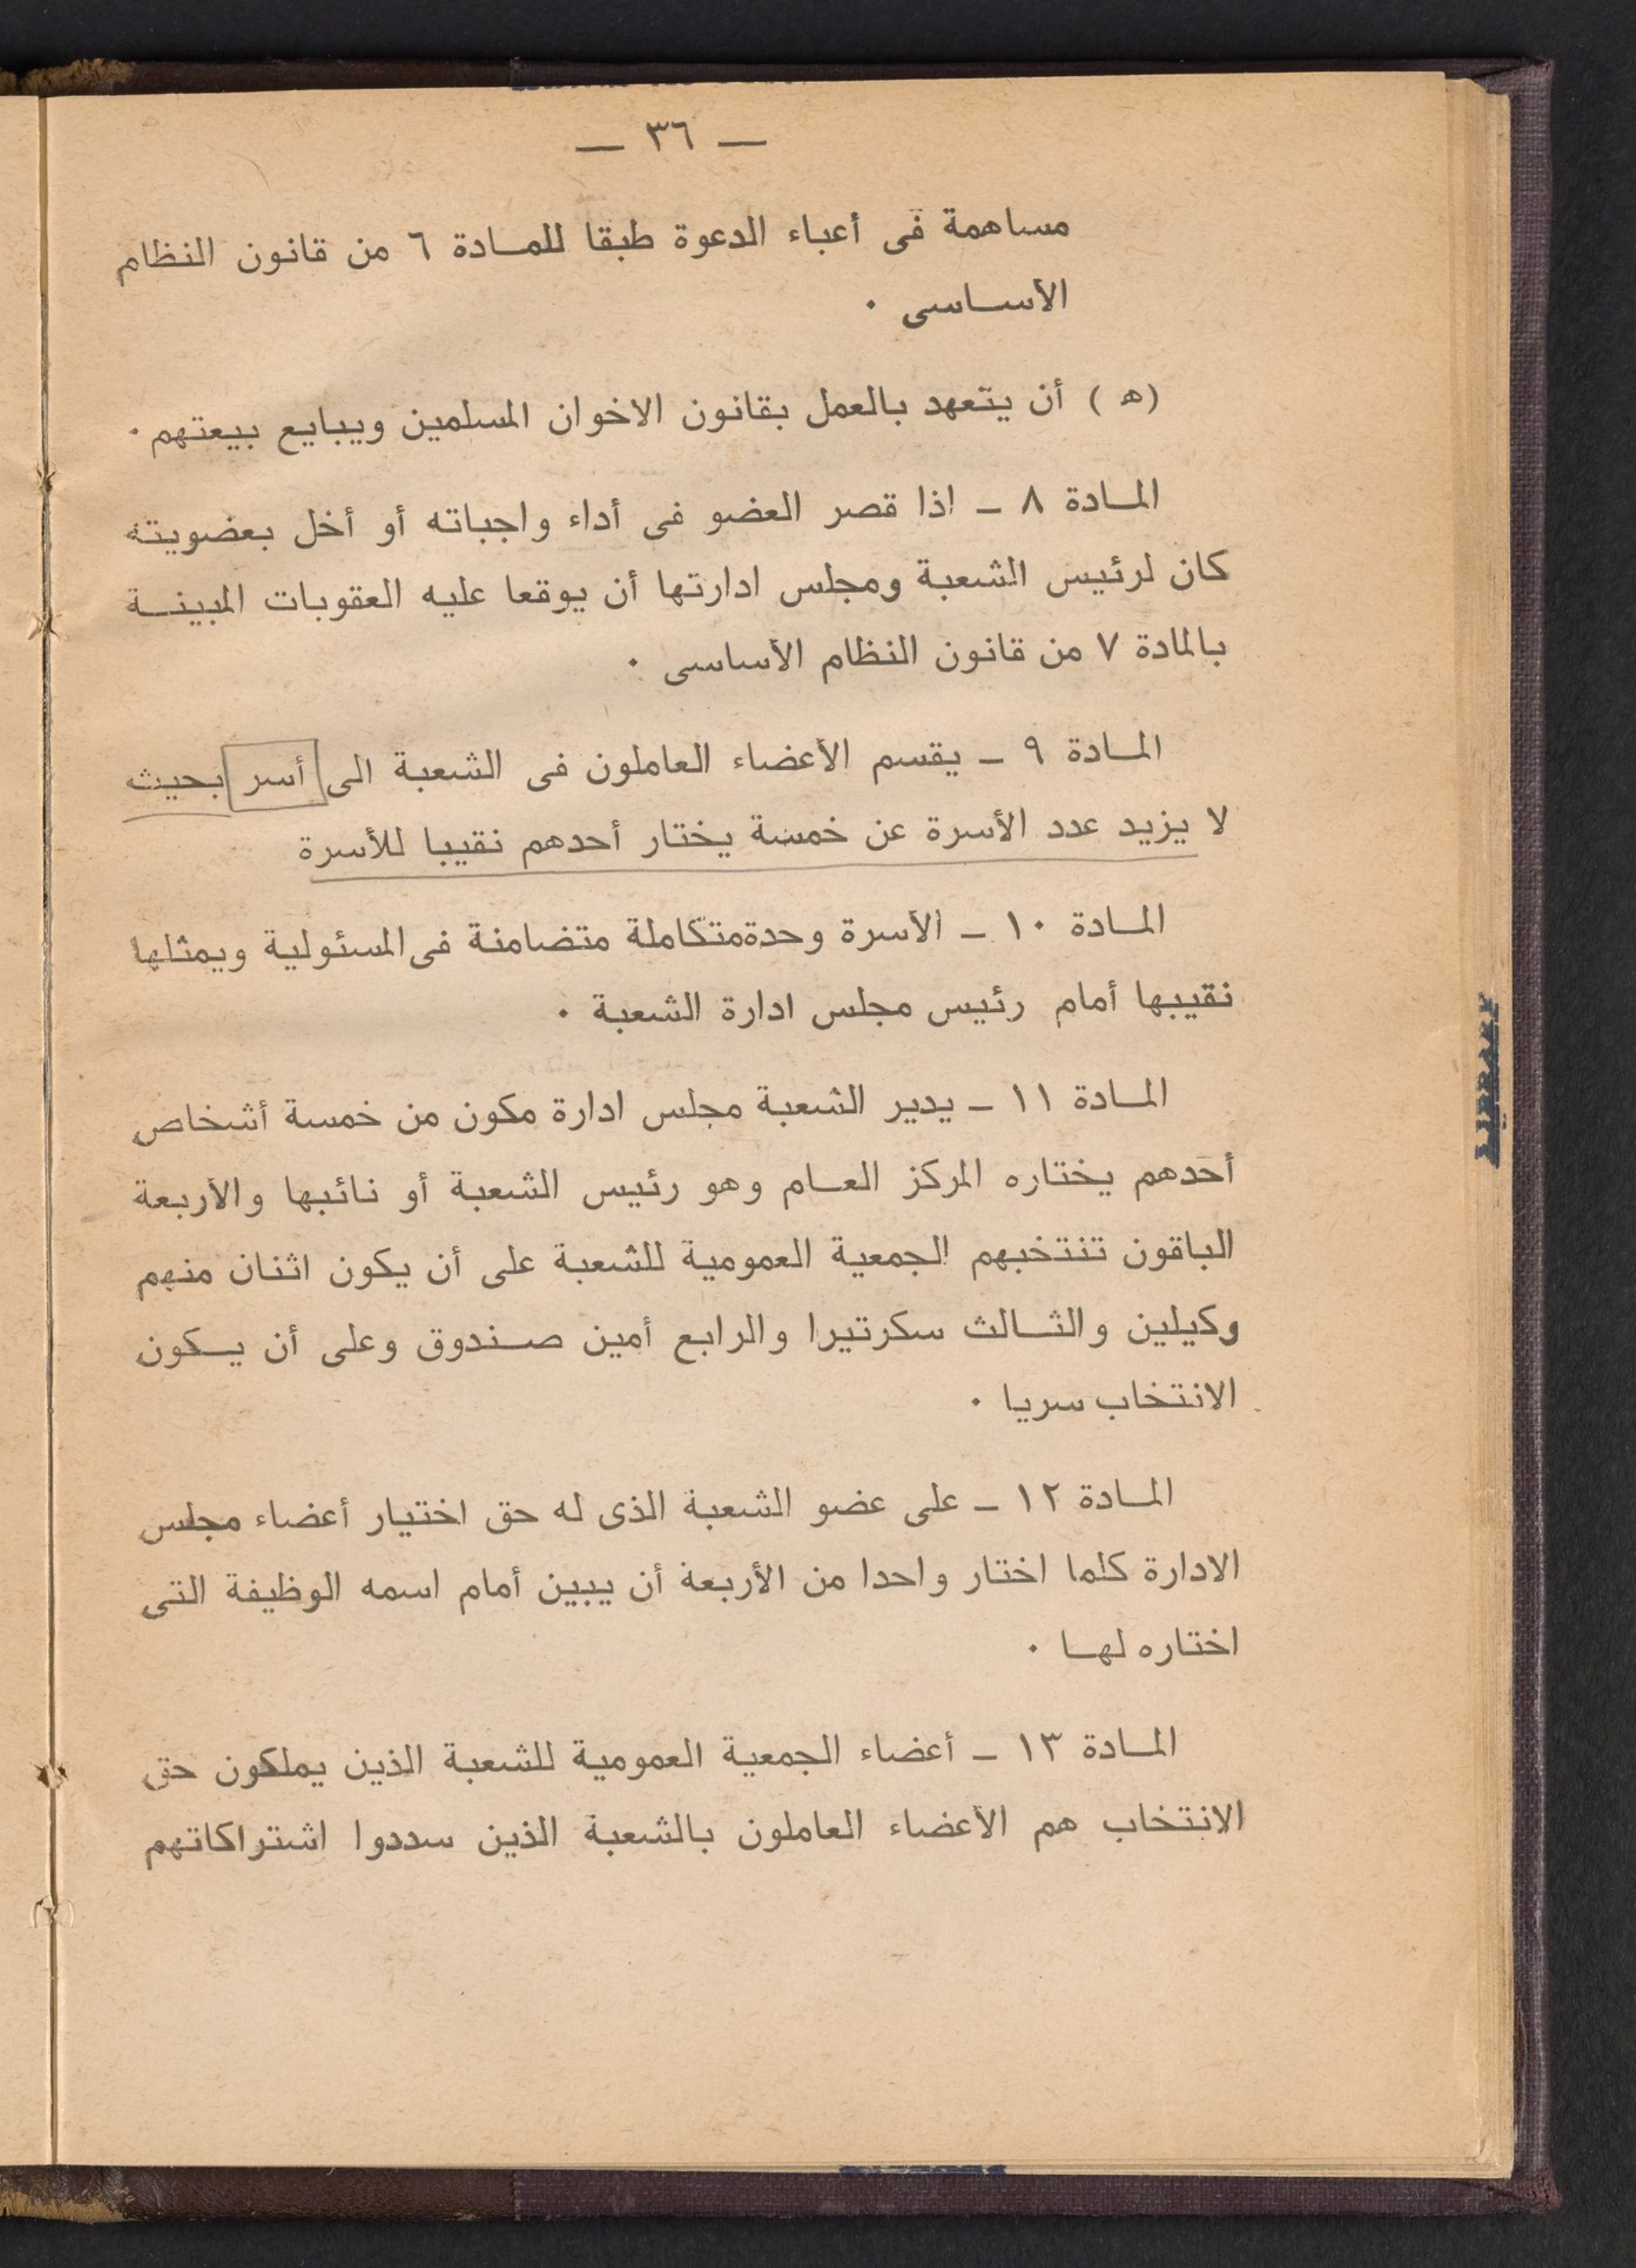 — ٣٦ —
مساهمة فى أعباء الدعوة طبقا للمادة ٦ من قانون النظام
الأساسى ٠
(ه) أن يتعهد بالعمل بقانون الاخوان المسلمين ويبايع بيعتهم ٠
المادة ٨ – اذا قصر العضو فى أداء واجباته أو أخل بعضويته
كان لرئيس الشعبة ومجلس ادارتها أن يوقعا عليه العقوبات المبينة
بالمادة ٧ من قانون النظام الأساسى ٠
المادة ٩ – يقسم الأعضاء العاملون فى الشعبة الى أسر بحيث
لا يزيد عدد الأسرة عن خمسة يختار أحدهم نقيبا للأسرة
المادة ١٠ – الأسرة وحدة متكاملة متضامنة فى المسئولية ويمثلها
نقيبها أمام رئيس مجلس ادارة الشعبة ٠
المادة ١١ – يدير الشعبة مجلس ادارة مكون من خمسة أشخاص
أحدهم يختاره المركز العام وهو رئيس الشعبة أو نائبها والأربعة
الباقون تنتخبهم الجمعية العمومية للشعبة على أن يكون اثنان منهم
وكيلين والثالث سكرتيرا والرابع أمين صندوق وعلى أن يكون
الانتخاب سريا ٠
المادة ١٢ – على عضو الشعبة الذى له حق اختيار أعضاء مجلس
الادارة كلما اختار واحدا من الأربعة أن يبين أمام اسمه الوظيفة التى
اختاره لها ٠
المادة ١٣ – أعضاء الجمعية العمومية للشعبة الذين يملكون حق
الانتخاب هم الأعضاء العاملون بالشعبة الذين سددوا اشتراكاتهم
LIBRARY